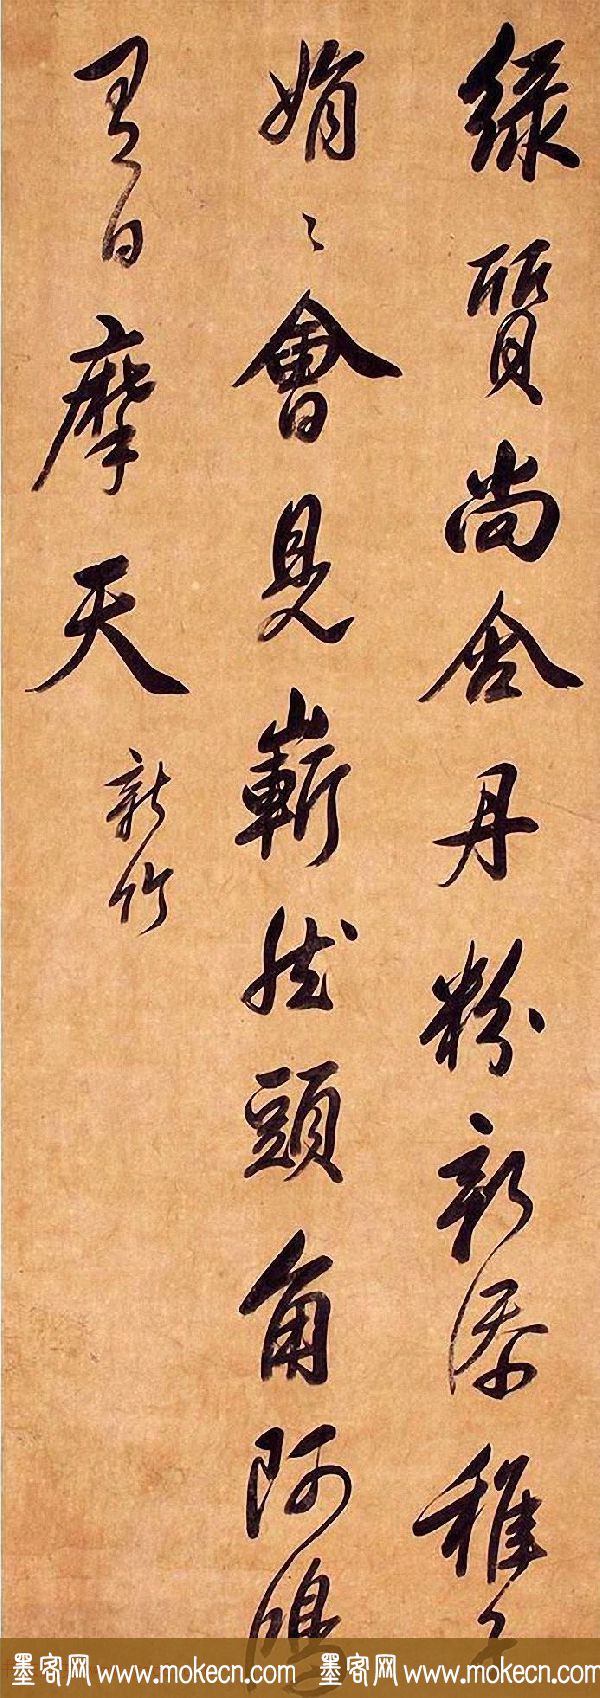 綠質尚含丹粉新添稚子
娟〻會見嶄然頭角阿
日摩天
新竹
墨客网 www.mokecn.com 墨客网 www.mokecn.com